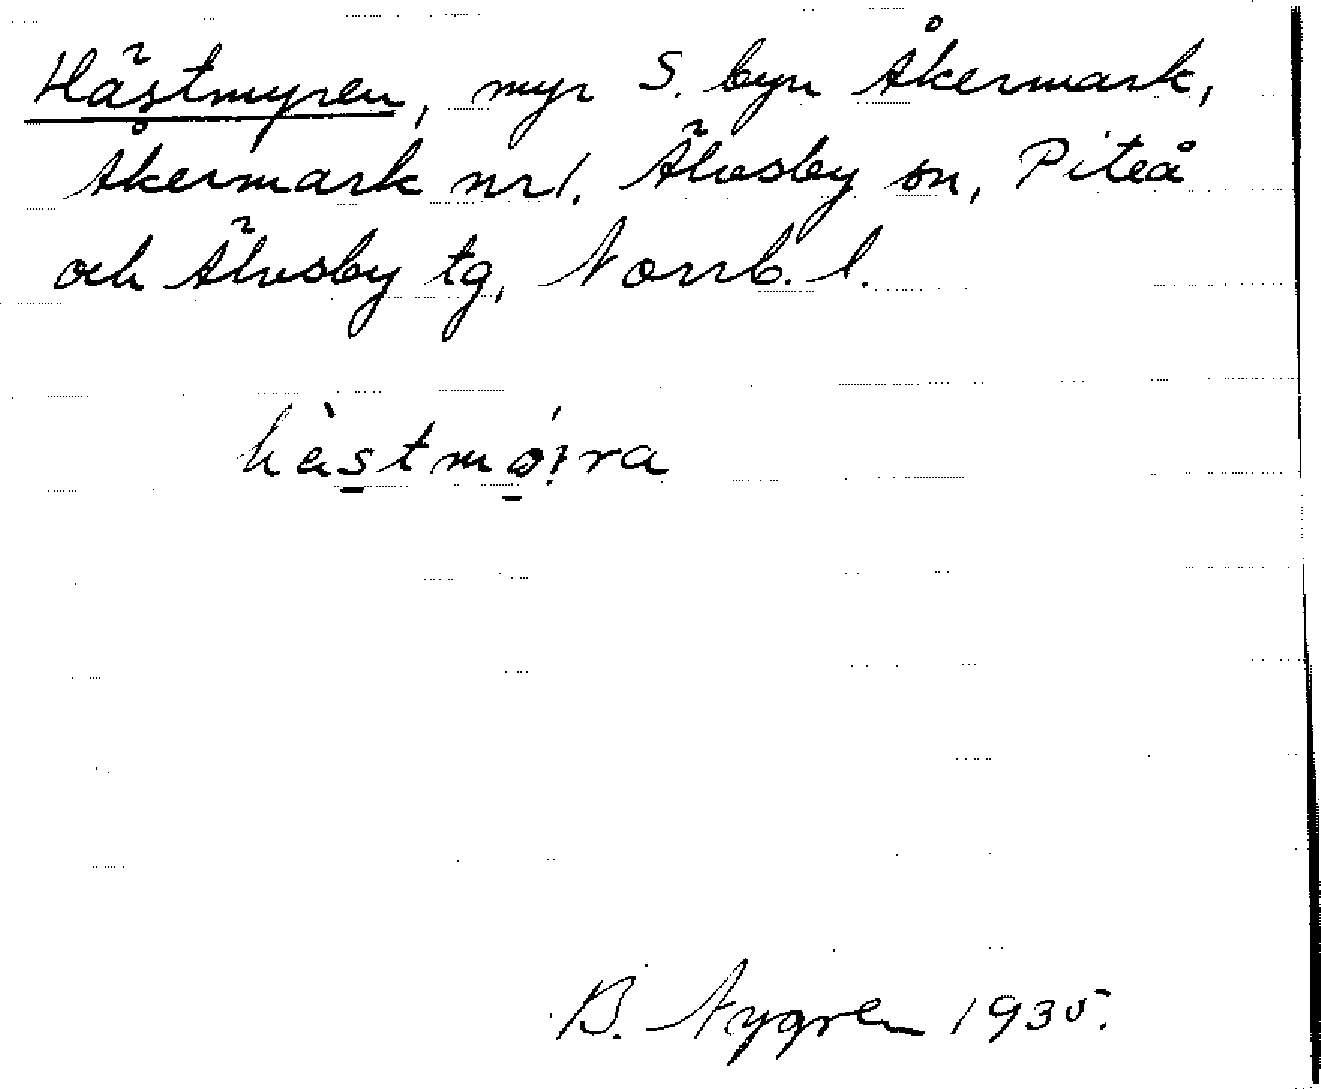 Hästmyren, myr S. byn Åkermark,
Åkermark nr 1. Älvsby sn, Piteå
och Älvsby tg, Norrb. l.
B. Nygren 1935.